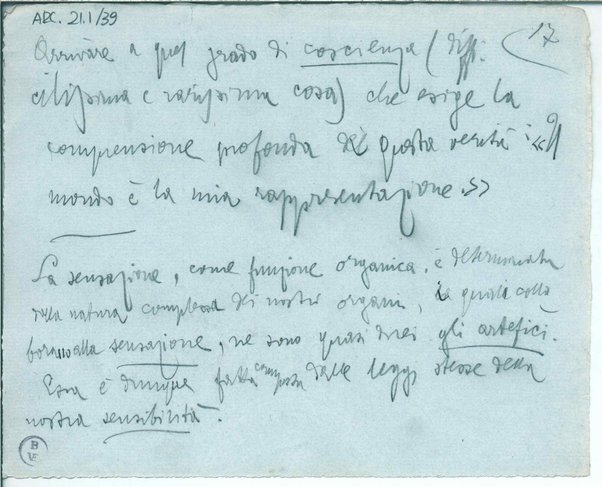 ARC. 21.I/39
17
Arrivare a quel grado di coscienza (diffi-
cilissima e rarissima cosa) che esige la
comprensione profonda di questa verità: «Il
mondo è la mia rappresentazione.»
La sensazione, come funzione organica, è determinata
dalla natura complessa dei nostri organi, i quali colla-
borano alla sensazione, ne sono quasi direi gli artefici.
Essa è dunque fatta composta dalle leggi stesse della
nostra sensibilità.
B
VE